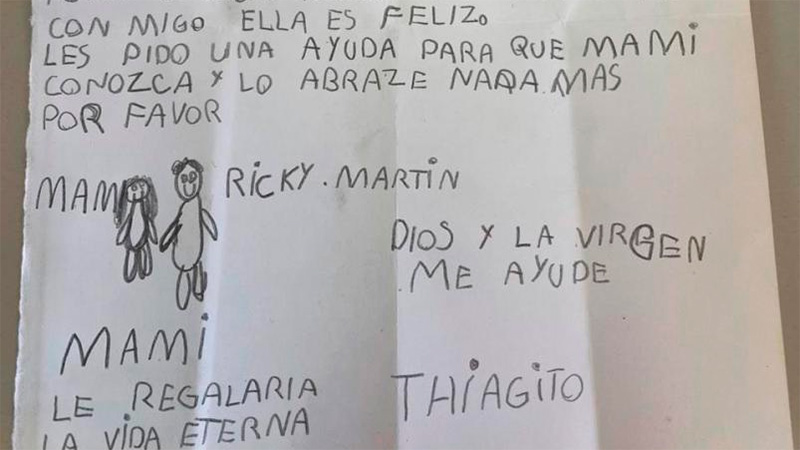 CON MIGO ELLA ES FELIZ.
LES PIDO UNA AYUDA PARA QUE MAMI
CONOZCA Y LO ABRAZE NADA.MAS
POR FAVOR
MAMI
RICKY.MARTIN
DIOS Y LA VIRGEN
.ME AYUDE
MAMI
LE REGALARIA
LA VIDA ETERNA
THIAGITO